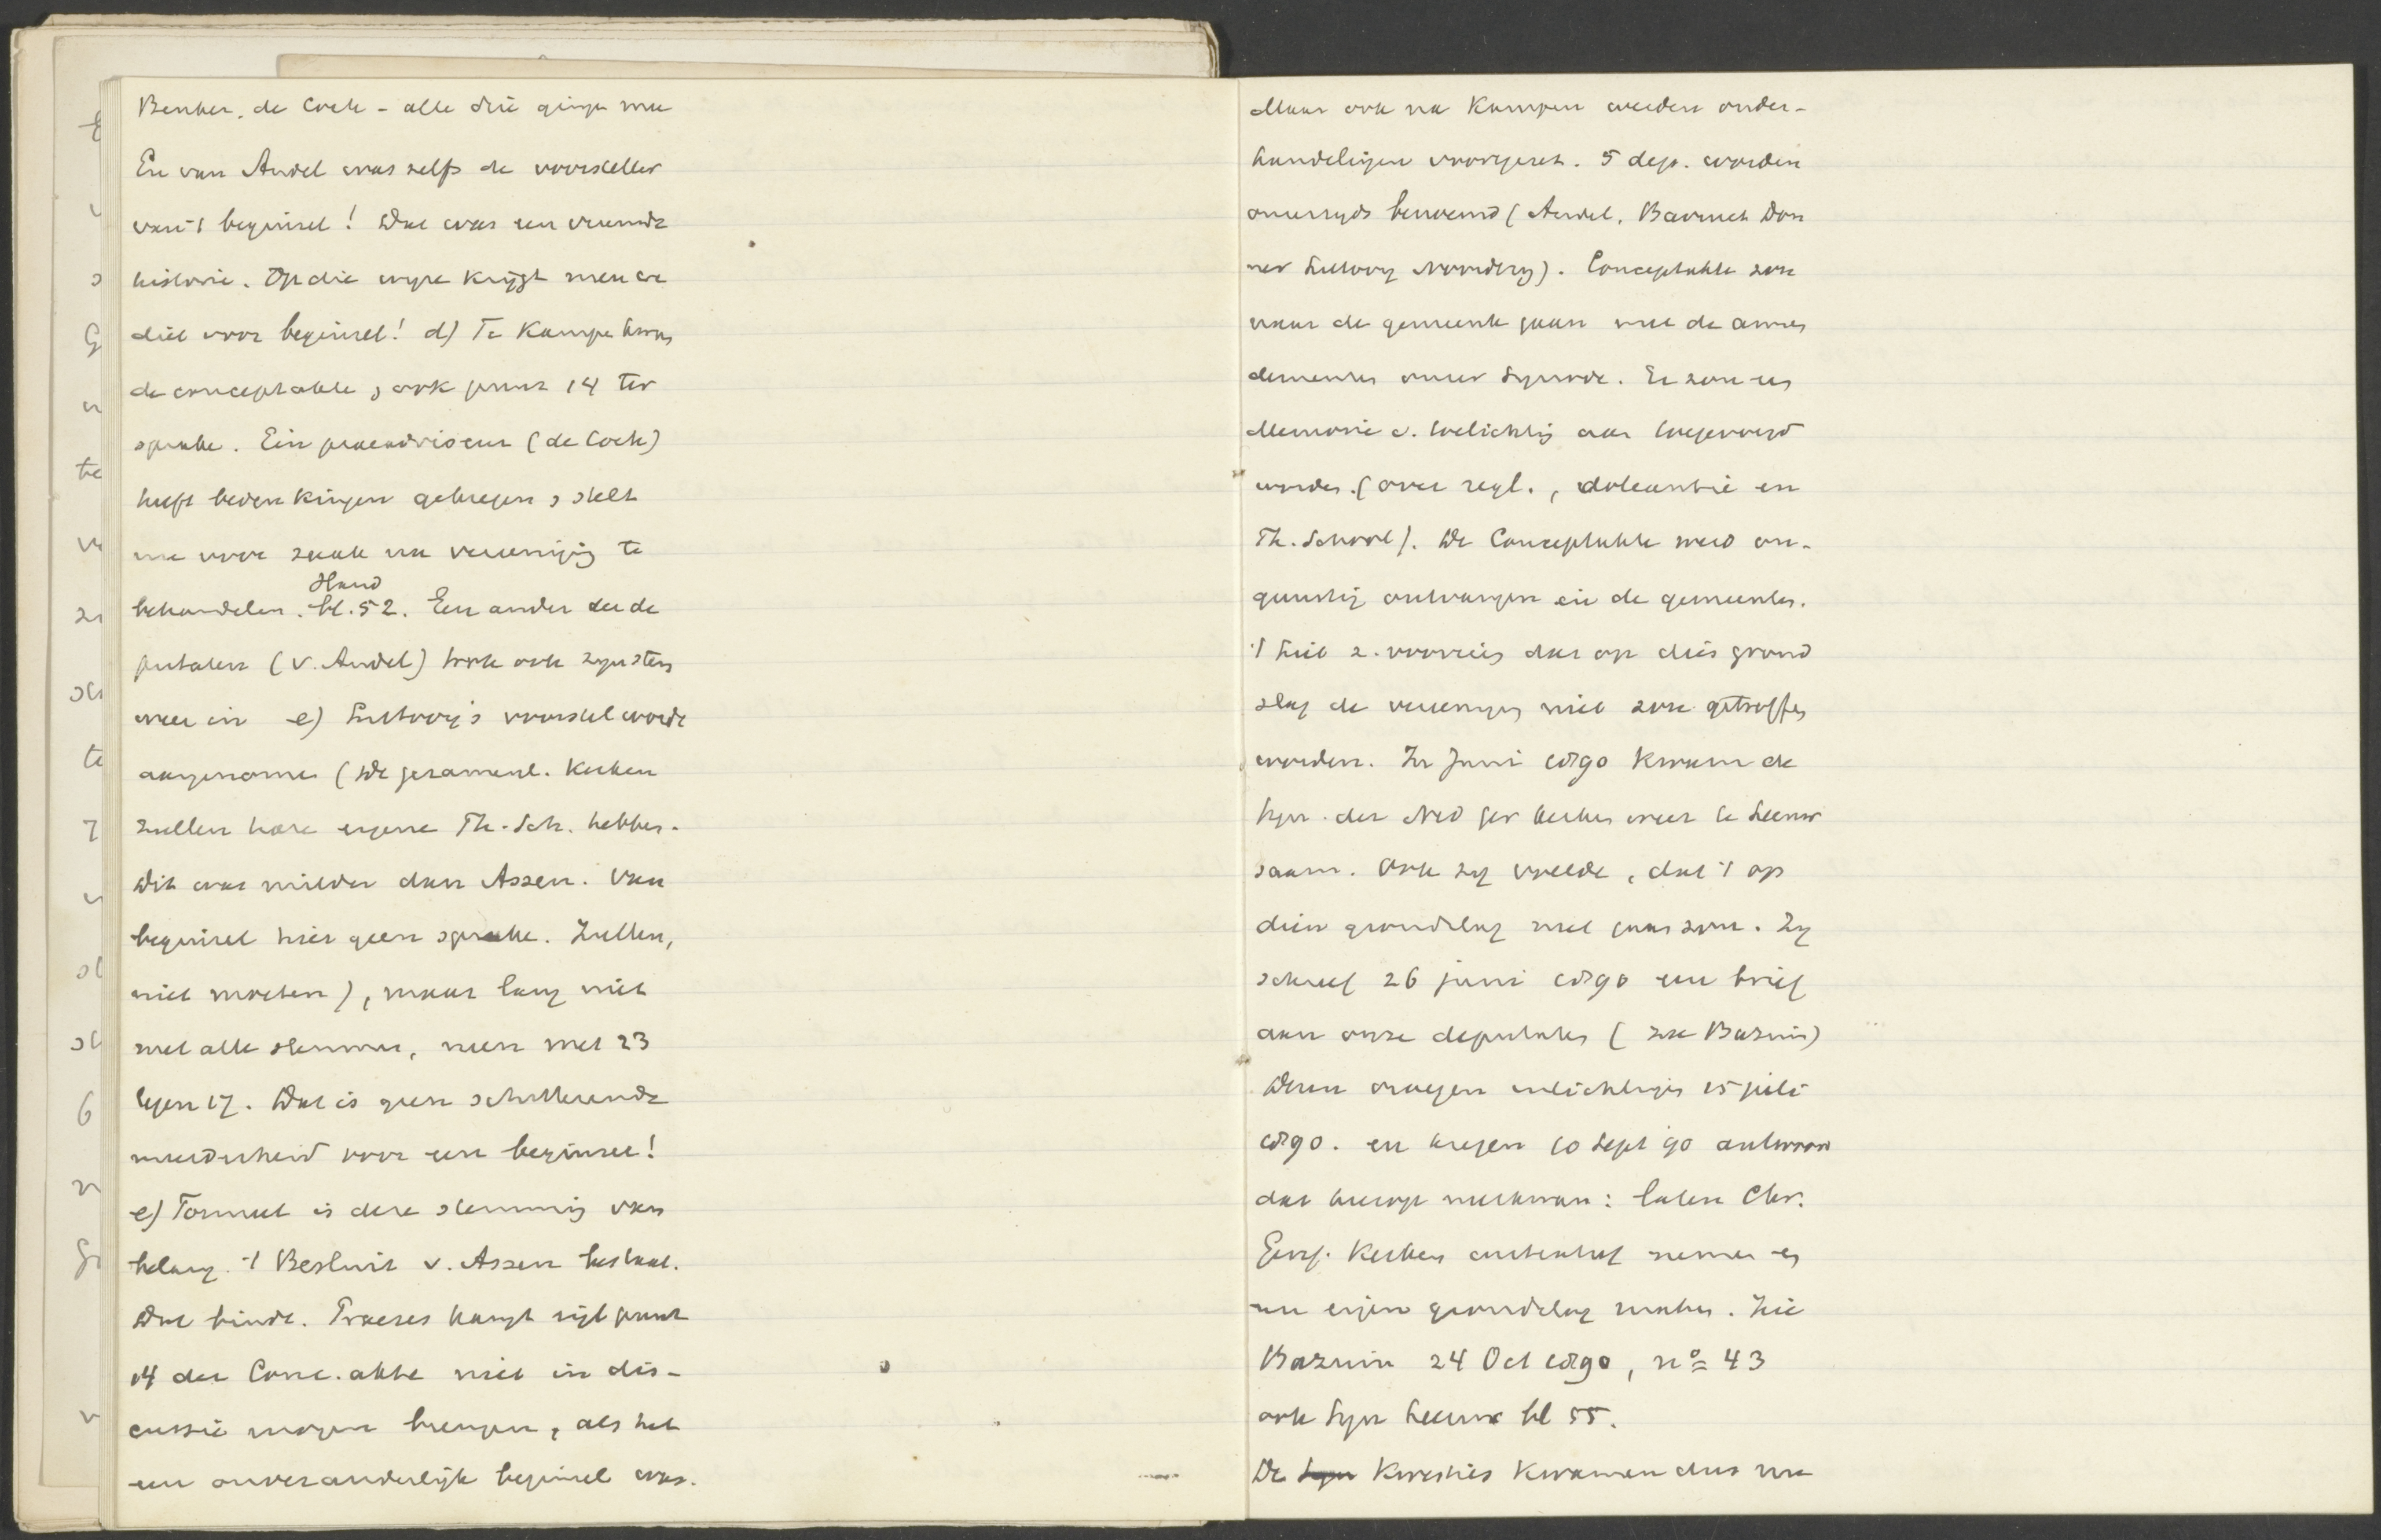 Beuker, de Cock - alle drie gingen mee
En van Andel was zelfs de voorsteller
van 't beginsel! Dat was een vreemde
historie. Op die wyze krijgt men er
diet voor beginsel! d) Te Kampen kwam
de conceptakte, ook punt 14 ter
sprake. Ein praeadviseur (de Cock)
heeft bedenkingen gekregen, stelt
nu voor zaak na vereeniging te
behandelen. Hand bl. 52. Een ander der de
putaten (v. Andel) trok ook zyn stem
weer in e) Lindeboom's voorstel werd
aangenomen (De gezamenl. Kerken
zullen hare eigene Th. Sch. hebben.
Dit was milder dan Assen. Van
beginsel hier geen sprake. Zullen,
niet moeten), maar lang niet
met alle stemmen, neen met 23
tegen 17. Dat is geen schitterende
meerderheid voor een beginsel!
e) Formeel is deze stemming van
belang. 't Besluit v. Assen bestaat.
Dat bindt. Praeses had punt
14 der Conc. akte niet in dis-
cussie mogen brengen, als het
een onveranderlijk beginsel was.
Maar ook na Kampen werden onder-
handelingen voortgezet. 5 dep. worden
onzerzyds benoemd (Andel, Bavinck Don
ner Noordzy). Conceptakte zou
naar de gemeente gaan met de amen
dementen onzer Synode. Er zou een
Memorie v. toelichting aan toegevoegd
worden. (over regl., doleantie en
Th. School). De Conceptakte werd on-
gunstig ontvangen in de gemeenten.
't Liet z. voorzien dat op dien grond
slag de vereeniging niet zou getroffen
worden. In Juni 1890 kwam de
Syn. der Ned Ger Kerken weer te Leeuw
saam. Ook zy vreesde, dat 't op
dien grondslag niet gaan zou. Zy
schreef 26 juni 1890 een brief
aan onze deputaten (zie Bazuin)
Dezen vroegen inlichtingen 15 juli
1890. en kregen 10 Sept '90 antwoord
dat hierop neerkwam: laten Chr.
Geref. Kerken initiatief nemen en
een eigen grondslag maken. Zie
Bazuin 24 Oct 1890, no 43
ook Syn Leeuw bl 55.
De Syn Kwesties kwamen dus nu